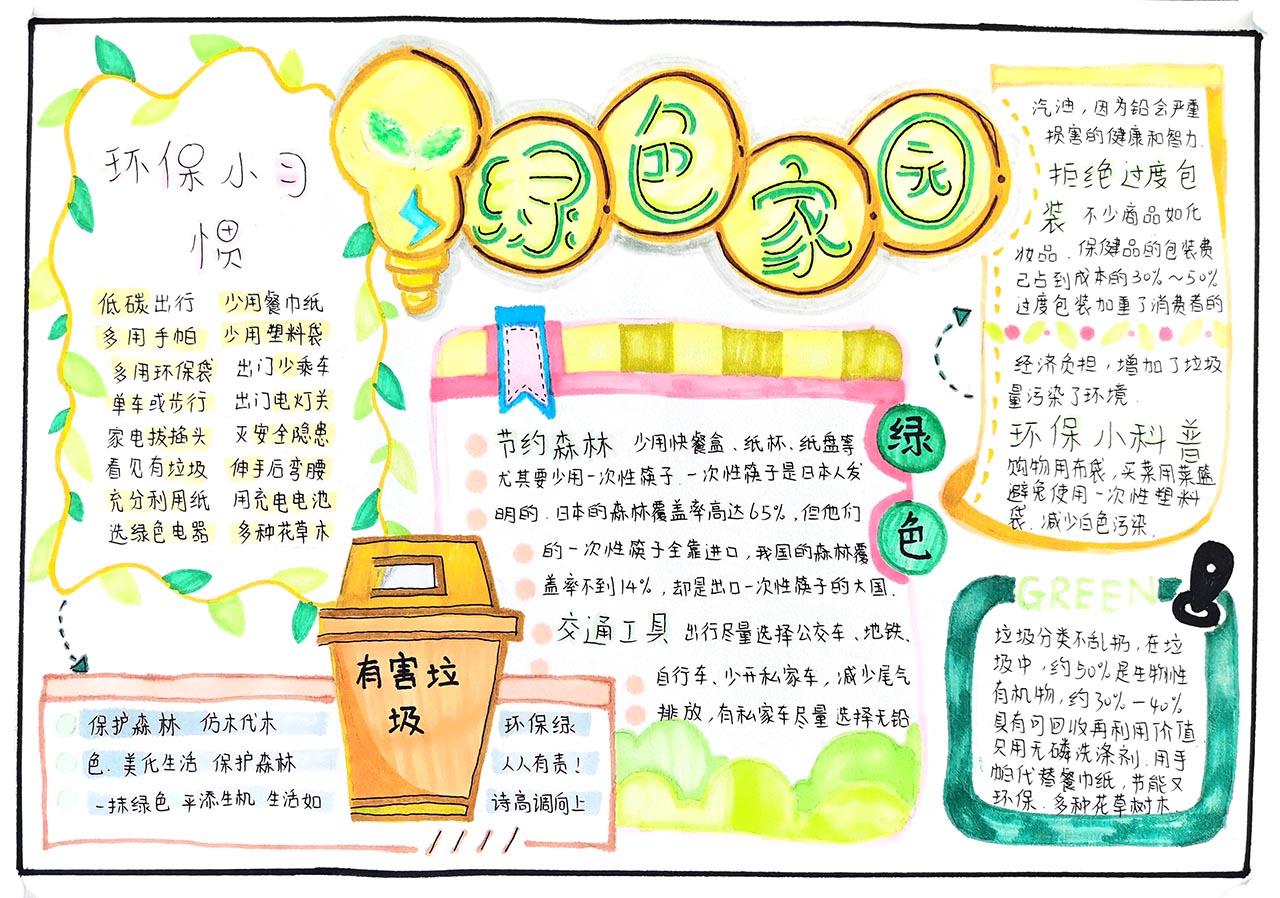 绿色家元
环保小习
惯
低碳出行 少用餐巾纸
多用手帕 少用塑料袋
多用环保袋 出门少乘车
单车或步行 出门电灯关
家电拔插头 灭安全隐患
看见有垃圾 伸手后弯腰
充分利用纸 用充电电池
选绿色电器 多种花草木
有害垃
圾
保护森林 仿木代木 环保绿
色.美化生活 保护森林 人人有责!
一抹绿色 平添生机 生活如 诗高调向上
节约森林 少用快餐盒、纸杯、纸盘等
尤其要少用一次性筷子.一次性筷子是日本人发
明的.日本的森林覆盖率高达65%,但他们
的一次性筷子全靠进口,我国的森林覆
盖率不到14%,却是出口一次性筷子的大国.
交通工具 出行尽量选择公交车、地铁、
自行车、少开私家车,减少尾气
排放,有私家车尽量选择无铅
绿
色
汽油,因为铅会严重
损害的健康和智力.
拒绝过度包
装 不少商品如化
妆品、保健品的包装费
已占到成本的30%~50%
过度包装加重了消费者的
经济负担,增加了垃圾
量污染了环境.
环保小科普
购物用布袋,买菜用菜篮
避免使用一次性塑料
袋.减少白色污染.
GREEN
垃圾分类不乱扔,在垃
圾中,约50%是生物性
有机物,约30%-40%
具有可回收再利用价值
只用无磷洗涤剂.用手
帕代替餐巾纸,节能又
环保.多种花草树木